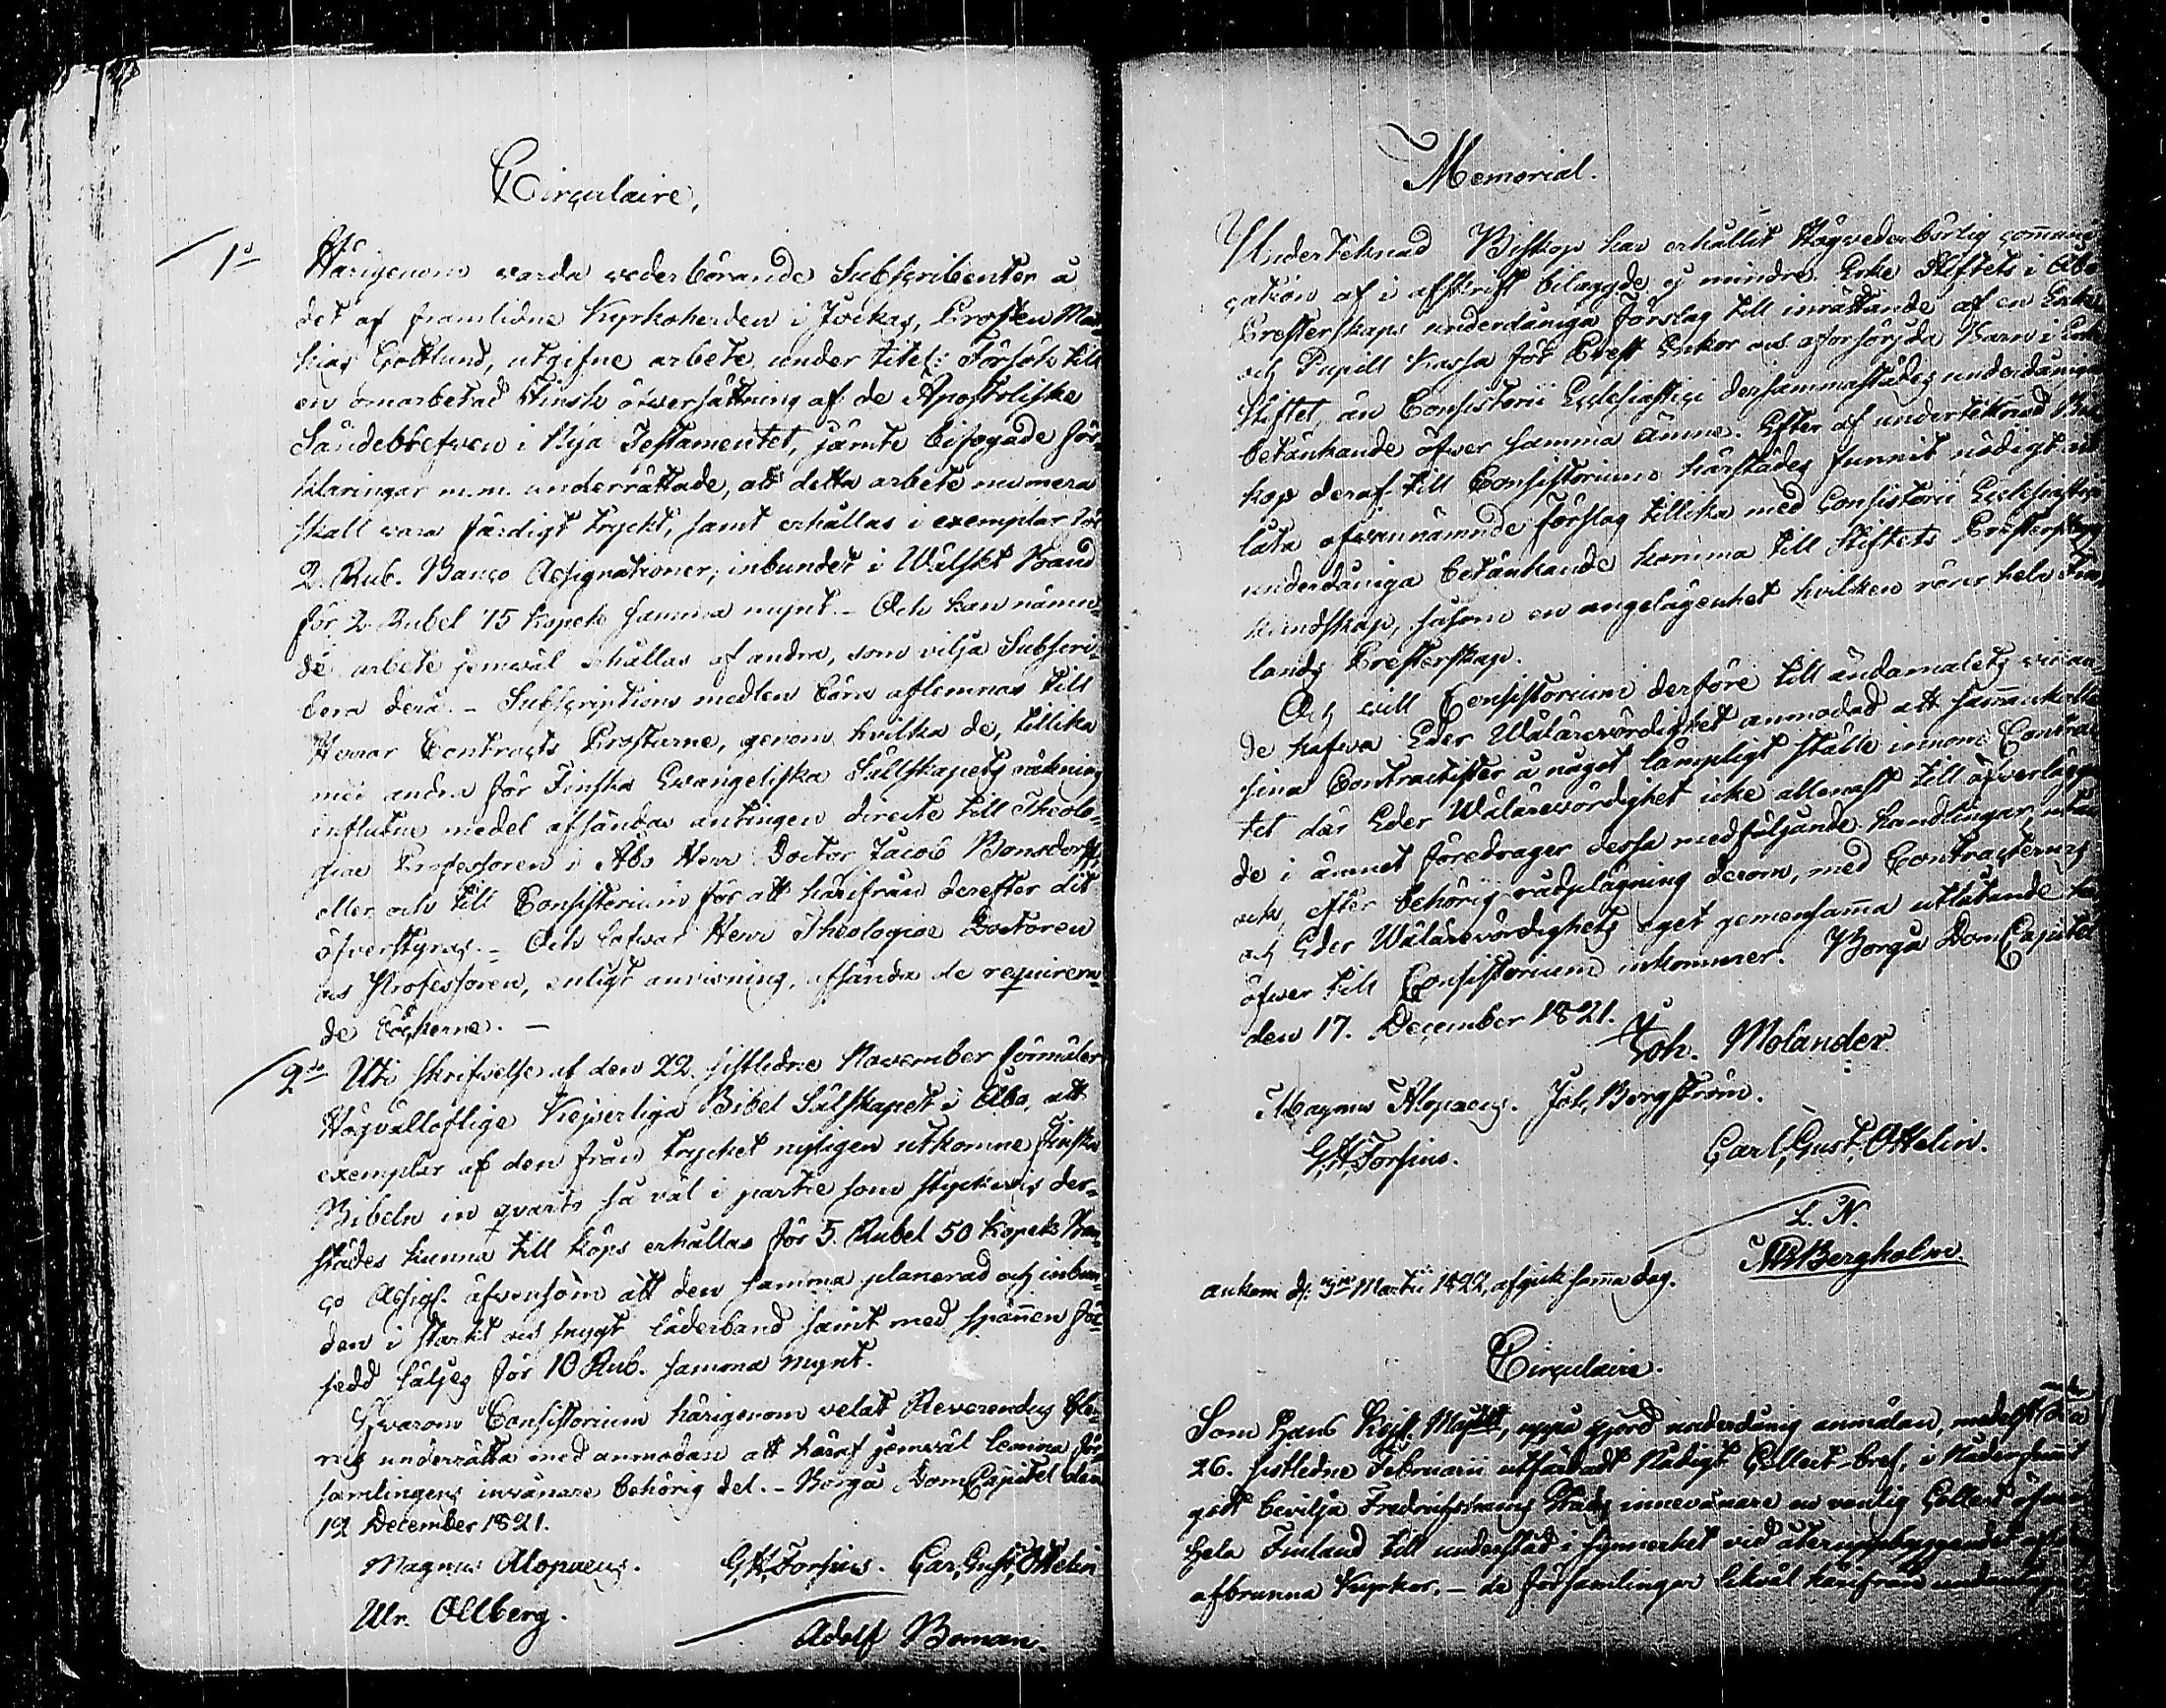 Circulaire,
1o Härigenom warda vederbörande Subscribenter å
det af framlidne Kyrkoherden i Jockas, Prosten Mat-
hias Gottlund, utgifne arbete, under titel: Försök till
en omarbetad Finsk öfversättning af de Apostoliske
Sändebrefven i Nya Testamentet, jämte bifogade för-
klaringar m.m. underrättade, att detta arbete numera
skall vara färdigt tryckt, samt erhållas i exemplar för
2. Rub. Banco Assignationer, inbundet i Wälskt Band
för 2 Rubel 75 kopek samma mynt. – Och kan nämn-
de arbete jemväl erhållas af andra, som vilja Subscri-
bera derå. – Subscriptions medlen böra aflemnas till
Herrar Contracts Prostarne, genom hvilka de, tillika
med andra för Finska Evangeliska Sällskapets räkning
influtne medel afsändas antingen directe till Theolo-
giae Professoren i Åbo Herr Doctor Jacob Bonsdorff,
eller och till Consistorium för att härifrån derefter dit
öfverstyras. – Och lofvar Herr Theologiae Doctoren
och Professoren, enligt anvisning, afsända de requireran-
de böckerne. –
2do Uti skrifvelse af den 22. sistledne November förmäler
Högvälloflige Kejserliga Bibel Sälskapet i Åbo, att
exemplar af den från trycket nyligen utkomne Finska
Bibeln in qvarto så väl i partie som styckevis der-
städes kunna till köps erhållas för 5. Rubel 50 kopek Ban-
co Assign. äfvensom att den samma planerad och inbun-
den i starkt och snygt läderband samt med spännen för-
sedd säljes för 10 Rub. samma mynt.
Hvarom Consistorium härigenom velat Reverendus Cle-
rus underrätta med anmodan att häraf jemväl lemna för-
samlingens invånare behörig del. – Borgå DomCapitel den
12 December 1821.
Magnus Alopaeus. G.H. Forsius. Carl Gust. Ottelin
Ulr. Ollberg.
Adolf Boman.
Memorial.
Undertecknad Biskop har erhållit Högvederbörlig communi-
cation af i afskrift bilagde ej mindre Erke Stiftets i Åbo
Presterskaps underdåniga förslag till inrättande af en Enke
och Pupill Kassa för Prest Enkor och oförsörjda Barn i Erke
Stiftet, än Consistorii Ecclesiastici dersammastädes underdåniga
betänkande öfver samma ämne. Efter af undertecknad Bis-
kop deraf till Consistorium härstädes funnit nödigt
låta ofvannämnde förslag tillika med Consistorii Ecclesiastici
underdåniga betänkande komma till Stiftets Presterskaps
kundskap, såsom en angelägenhet hvilken rörer hela Fin-
lands Presterskap.
Och vill Consistorium derföre till ändamålets vinnan-
de hafva Eder Wälärevördighet anmodad att sammankalla
sina Contractister å något lämpligt ställe inom Contrac-
tet där Eder Wälärevördighet icke allenast till öfverläggan-
de i ämnet föredrager dessa medföljande handlingar, utan
ock, efter behörig rådplägning derom, med Contracternes
och Eder Wälärevördighets eget gemensamma utlåtande här-
öfver till Consistorium inkommer. Borgå DomCapitel
den 17. December 1821.
Joh. Molander
Magnus Alopaeus. Joh. Borgström.
G.H. Forsius. Carl Gust. Ottelin.
L. N.
Bergholm.
ankom d. Martii 1822, afgick samma dag.
Circulaire.
Som Hans Kejs. Majestt, uppå gjord underdånig anmälan, medelst under den
26. sistledne Februarii utfärdadt Nådigt Collect-bref, i Nåder funnit
godt bevilja Fredrichshamns Stads innevånare en vanlig Collect öfver
hela Finland till understöd i synnerhet vid återuppbyggandet af
afbrunna Kyrkor, – de församlingar likväl härifrån undantagne